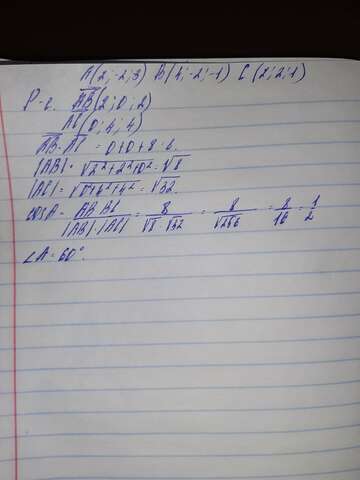 A(2;-2;3) B(4;-2;-1) C(2;2;1)
Р-е. AB(2;0;2)
AC(0;4;4)
AB·AC = 0+0+8=8.
|AB| = √2²+2²+0² = √8
|AC| = √0+4²+4² = √32
cosA = AB·AC / |AB|·|AC| = 8 / √8·√32 = 8 / √256 = 8/16 = 1/2
∠A = 60°.